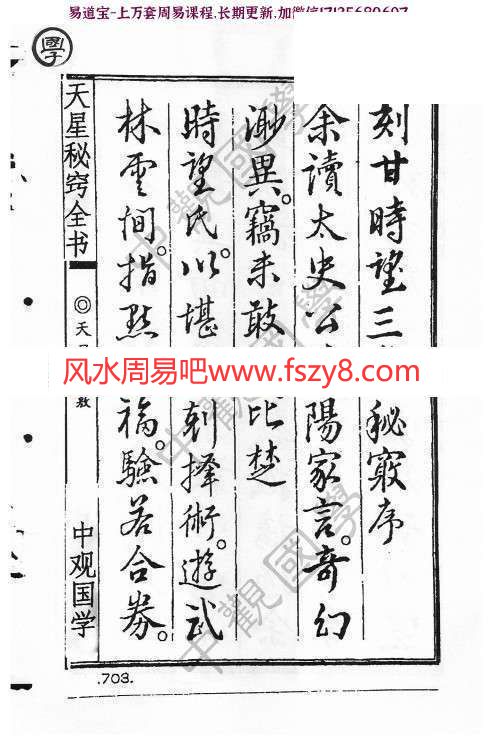 易道宝-上万套周易课程.长期更新.加微信
學
刻甘時望三 秘竅序
余讀太史公 陽家言。奇幻
渺異。竊未敢 比楚
時望氏。以堪 剌擇術。遊武
林雲間。指點 福。驗若合券。
天星秘窍全书
◎天
中观国学
风水周易吧www.fszy8.com
中觀國學
中觀國學
.703.